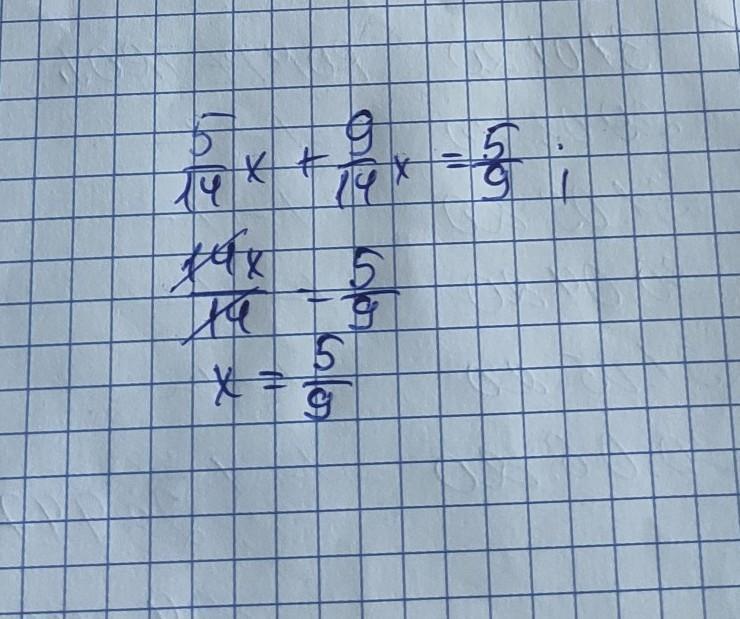 5/14 x + 9/14 x = 5/9 ;
14x/14 = 5/9
x = 5/9